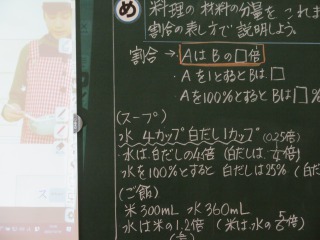 め 料理の材料の分量を これま
割合の表し方で説明しよう。
割合→ AはBの□倍
・Aを1とするとBは□
・Aを100%とするとBは□%
(スープ)
水 4カップ 白だし1カップ (0.25倍)
水は白だしの4倍 (白だしは1/4倍)
水を100%とすると 白だしは25% (白だ
(ご飯)
米300mL 水360mL
水は米の1.2倍 (米は水の5/6倍)